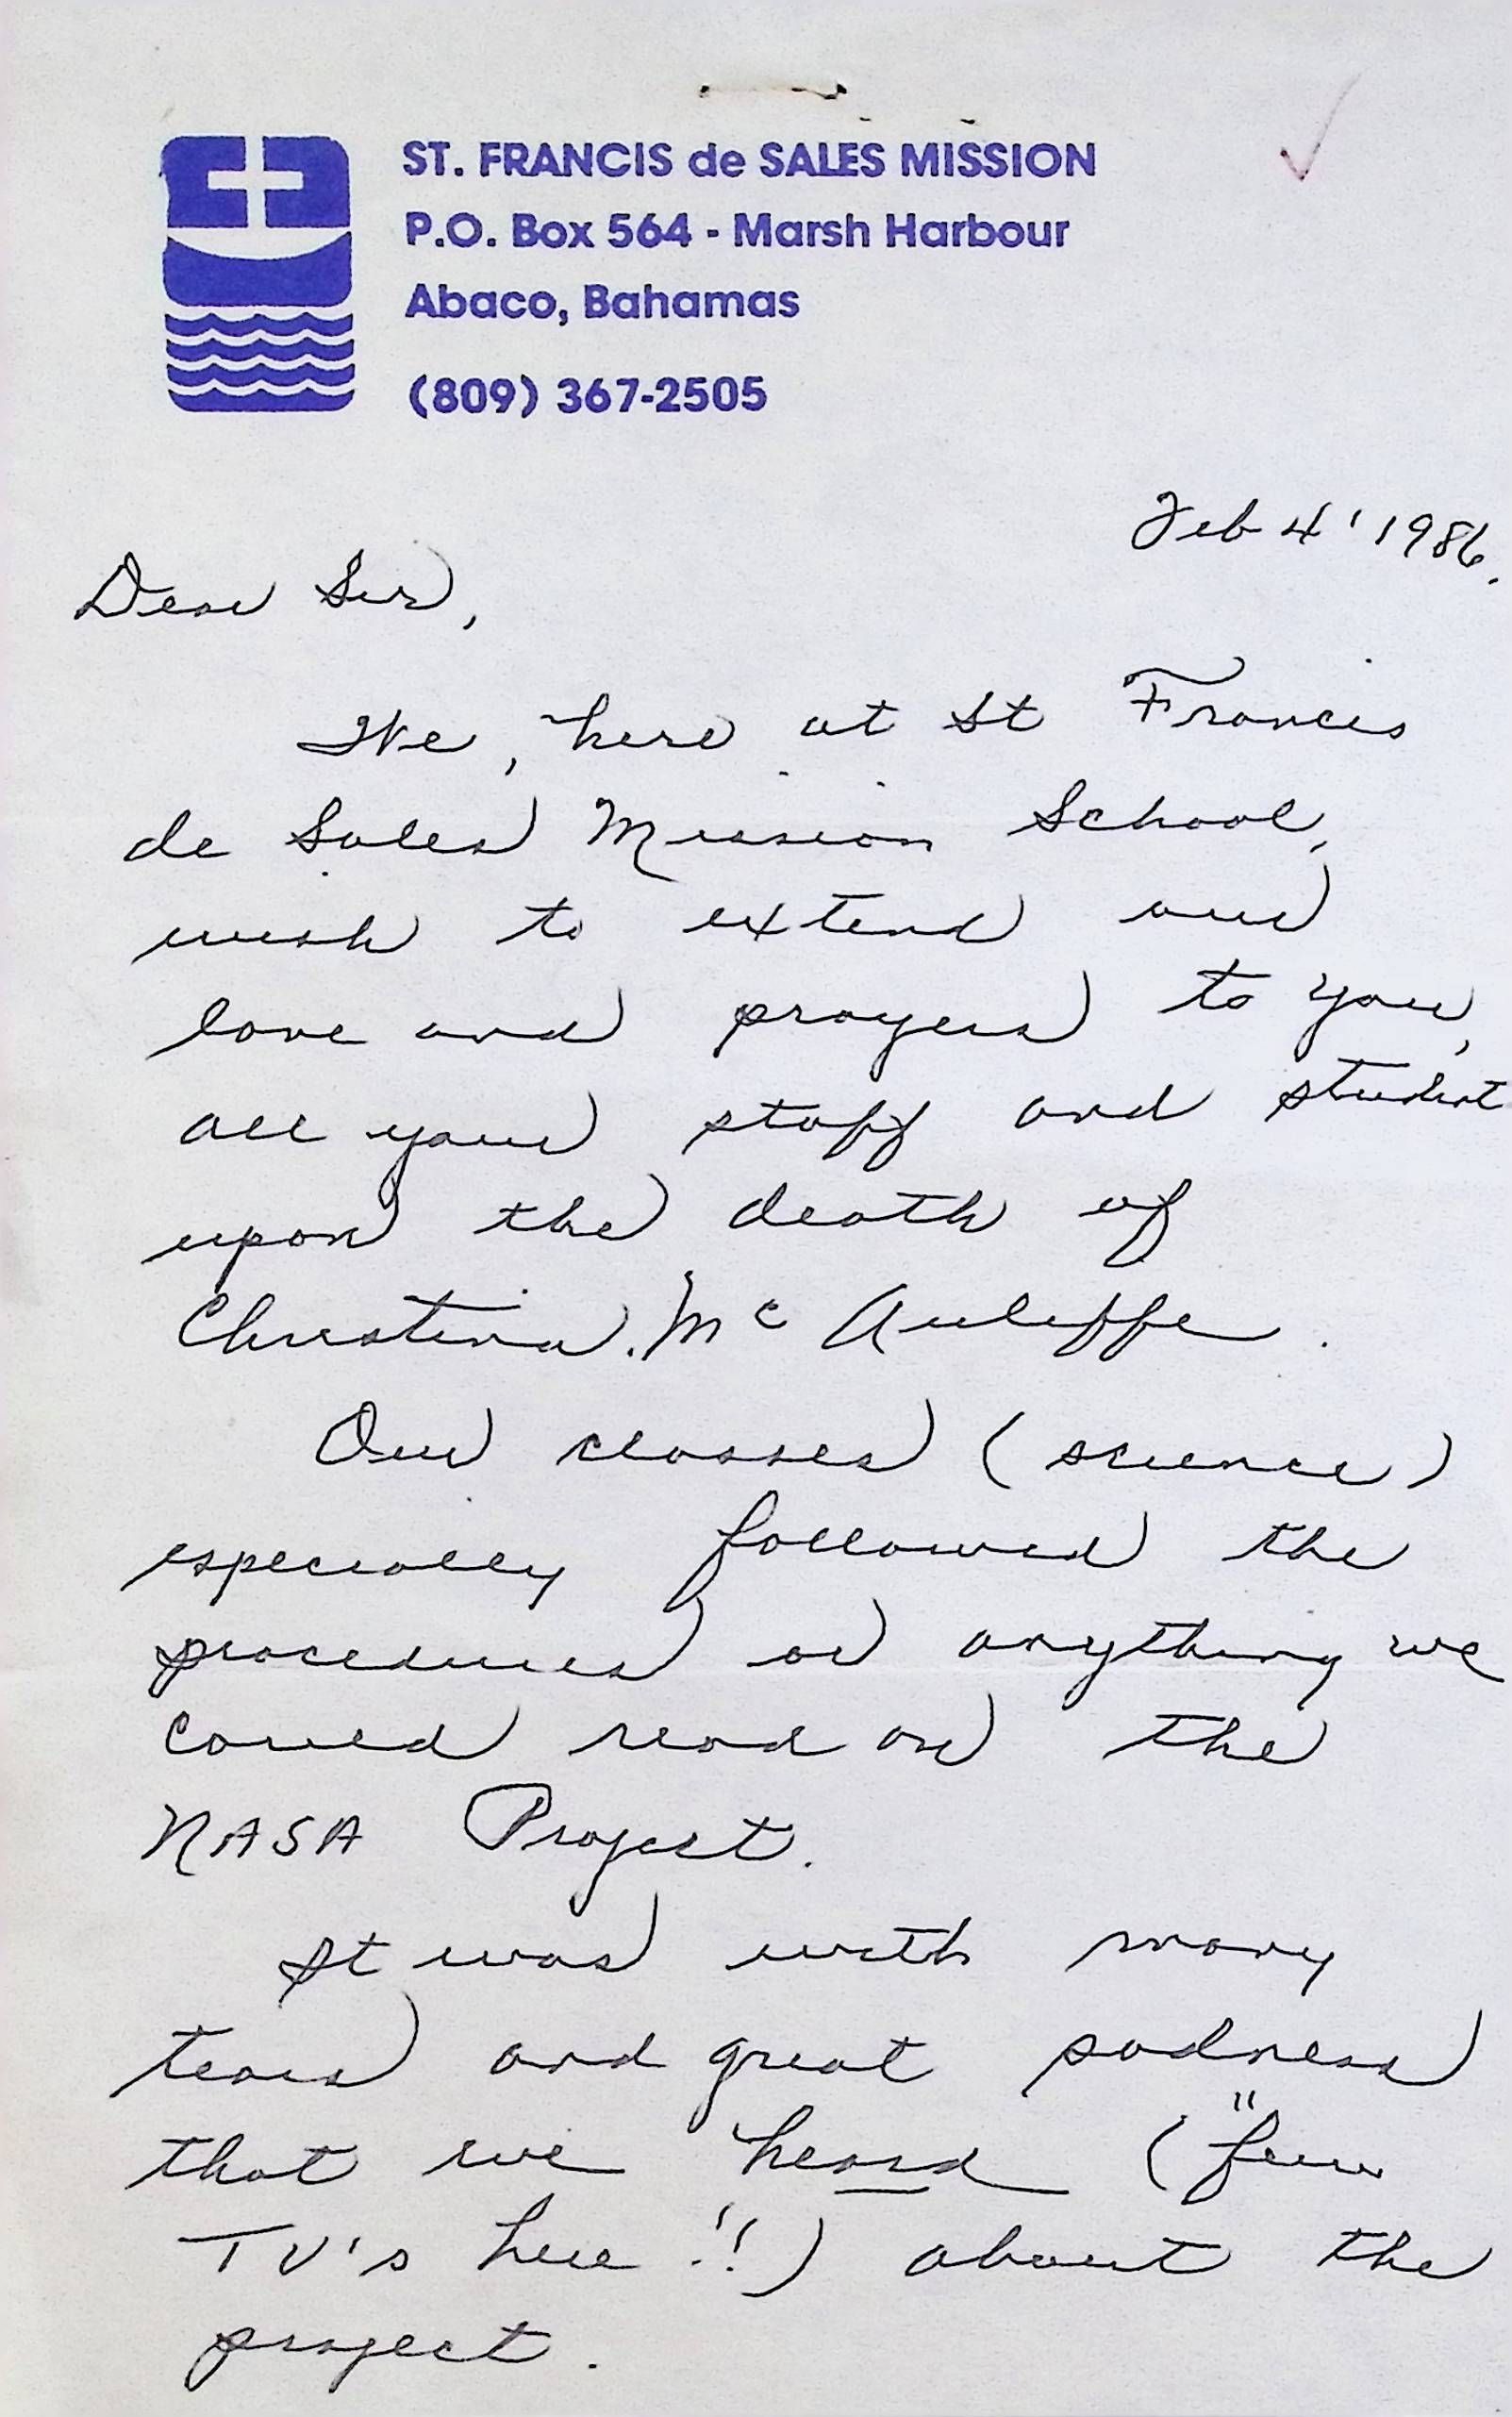 ST. FRANCIS de SALES MISSION
P.O. Box 564 - Marsh Harbour
Abaco, Bahamas
(809) 367-2505
Feb 4' 1986.
Dear Sir,
We, here at St Francis
de Sales Mission School,
wish to extend our
love and prayers to you,
all your staff and student
upon the death of
Christina Mc Auliffe.
Our classes (science)
especially followed the
procedures or anything we
could read on the
NASA Project.
It was with many
tears and great sadness
that we heard ("few
TV's here!") about the
project.